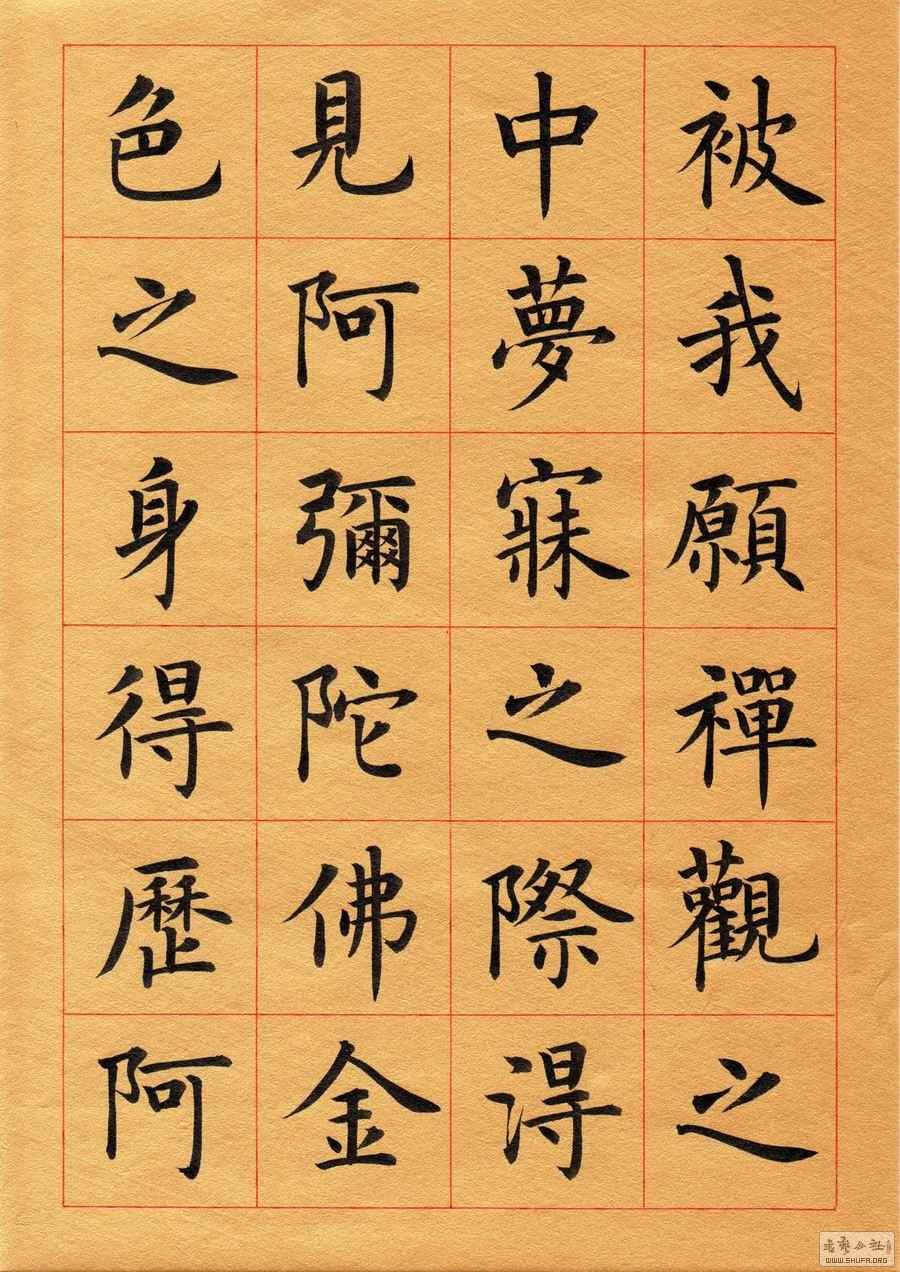 被我願禪觀之
中夢寐之際淂
見阿彌陀佛金
色之身得歷阿
书艺公社
WWW.SHUFA.ORG